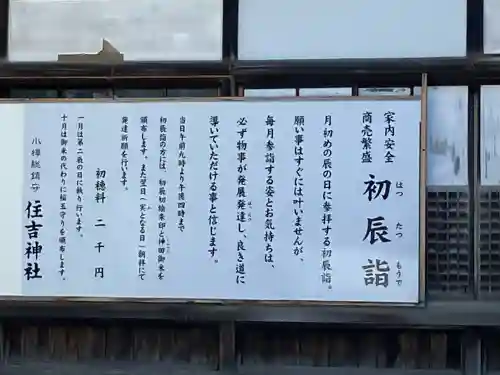 家内安全
商売繁盛
初辰詣
はつ たつ もうで
月初めの辰の日に参拝する初辰詣。
願い事はすぐには叶いませんが、
毎月参詣する姿とお気持ちは、
必ず物事が発展発達し、良き道に
導いていただける事と信じます。
当日午前九時より午後四時まで
初辰詣の方には、初辰初絵朱印と神田御米を
頒布します。また翌日(実となる日)朝拝にて
発達祈願を行います。
初穂料 二千円
一月は第二辰の日に執り行います。
十月は御米の代わりに稲玉守りを頒布します。
小樽総鎮守
住吉神社